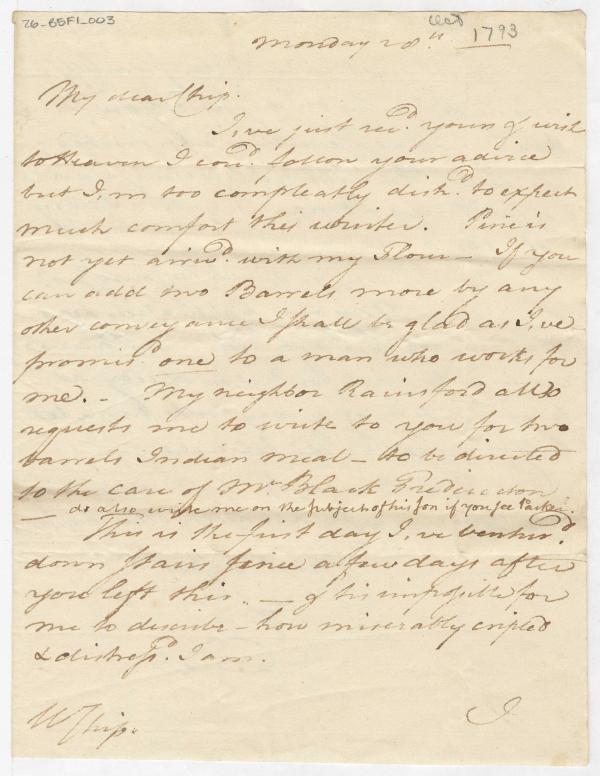 26-B5F1-003
Octo 1793
Monday 28th
My dear Chip.
I,ve just recd. yours & wish
to Heaven I coud. follow your advice
but I,m too compleatly dishd. to expect
much comfort this winter. Pine is
not yet arrivd. with my Flour – If you
can add two Barrels more by any
other conveyance I shall be glad as I,ve
promisd. one to a man who works for
me. – My neighbor Rainsford also
requests me to write to you for two
barrels Indian meal – to be directed
to the care of Mr. Black Fredericton
– do also write me on the subject of his son if you see Parker.
This is the first day I,ve venturd.
down Stairs since a few days after
you left this. – & tis impossible for
me to describe – how miserably cripled
& distressd. I am.
W Chip.
I